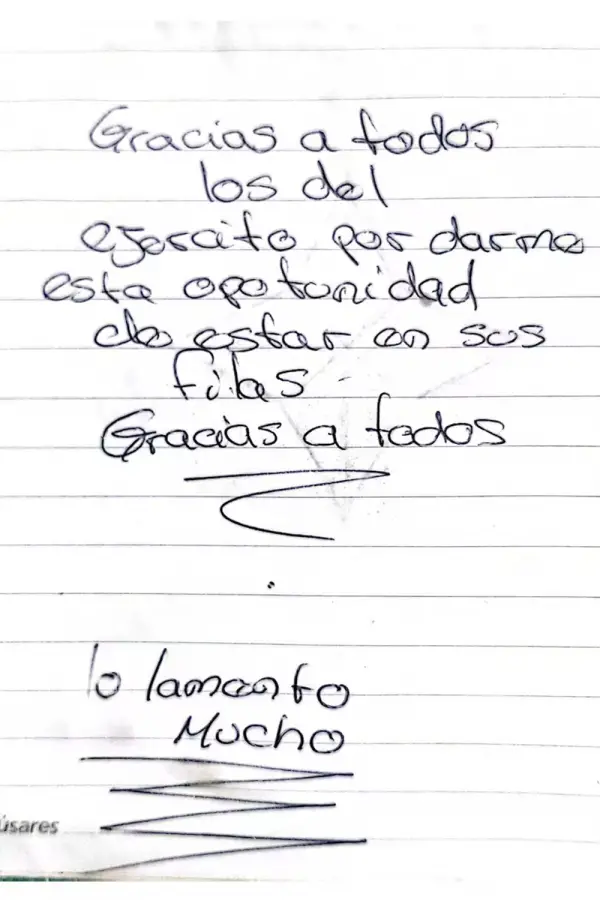 Gracias a todos
los del
ejercito por darme
esta opotunidad
de estar en sus
filas.
Gracias a todos
lo lamento
Mucho
úsares